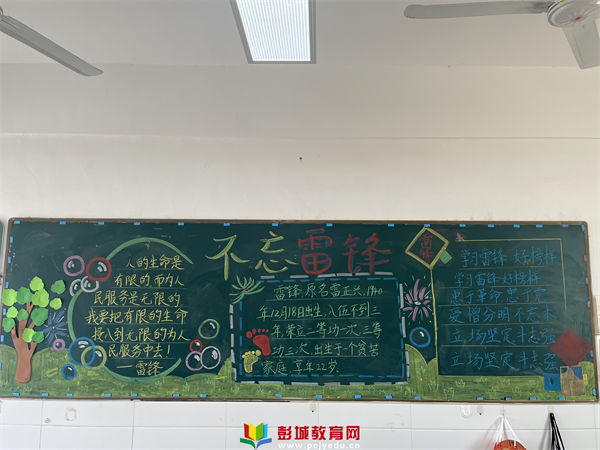 不忘雷锋
人的生命是
有限的而为人
民服务是无限的
我要把有限的生命
投入到无限的为人
民服务中去!
——雷锋
雷锋 原名雷正兴,1940
年12月18日出生,入伍不到三
年,荣立二等功一次 三等
功三次 出生于一个贫苦
家庭 享年22岁.
雷锋
学习雷锋 好榜样
学习雷锋 好榜样
忠于革命 忠于党
爱憎分明不忘本
立场坚定斗志强
立场坚定斗志强
彭城教育网
www.pcjyedu.cn